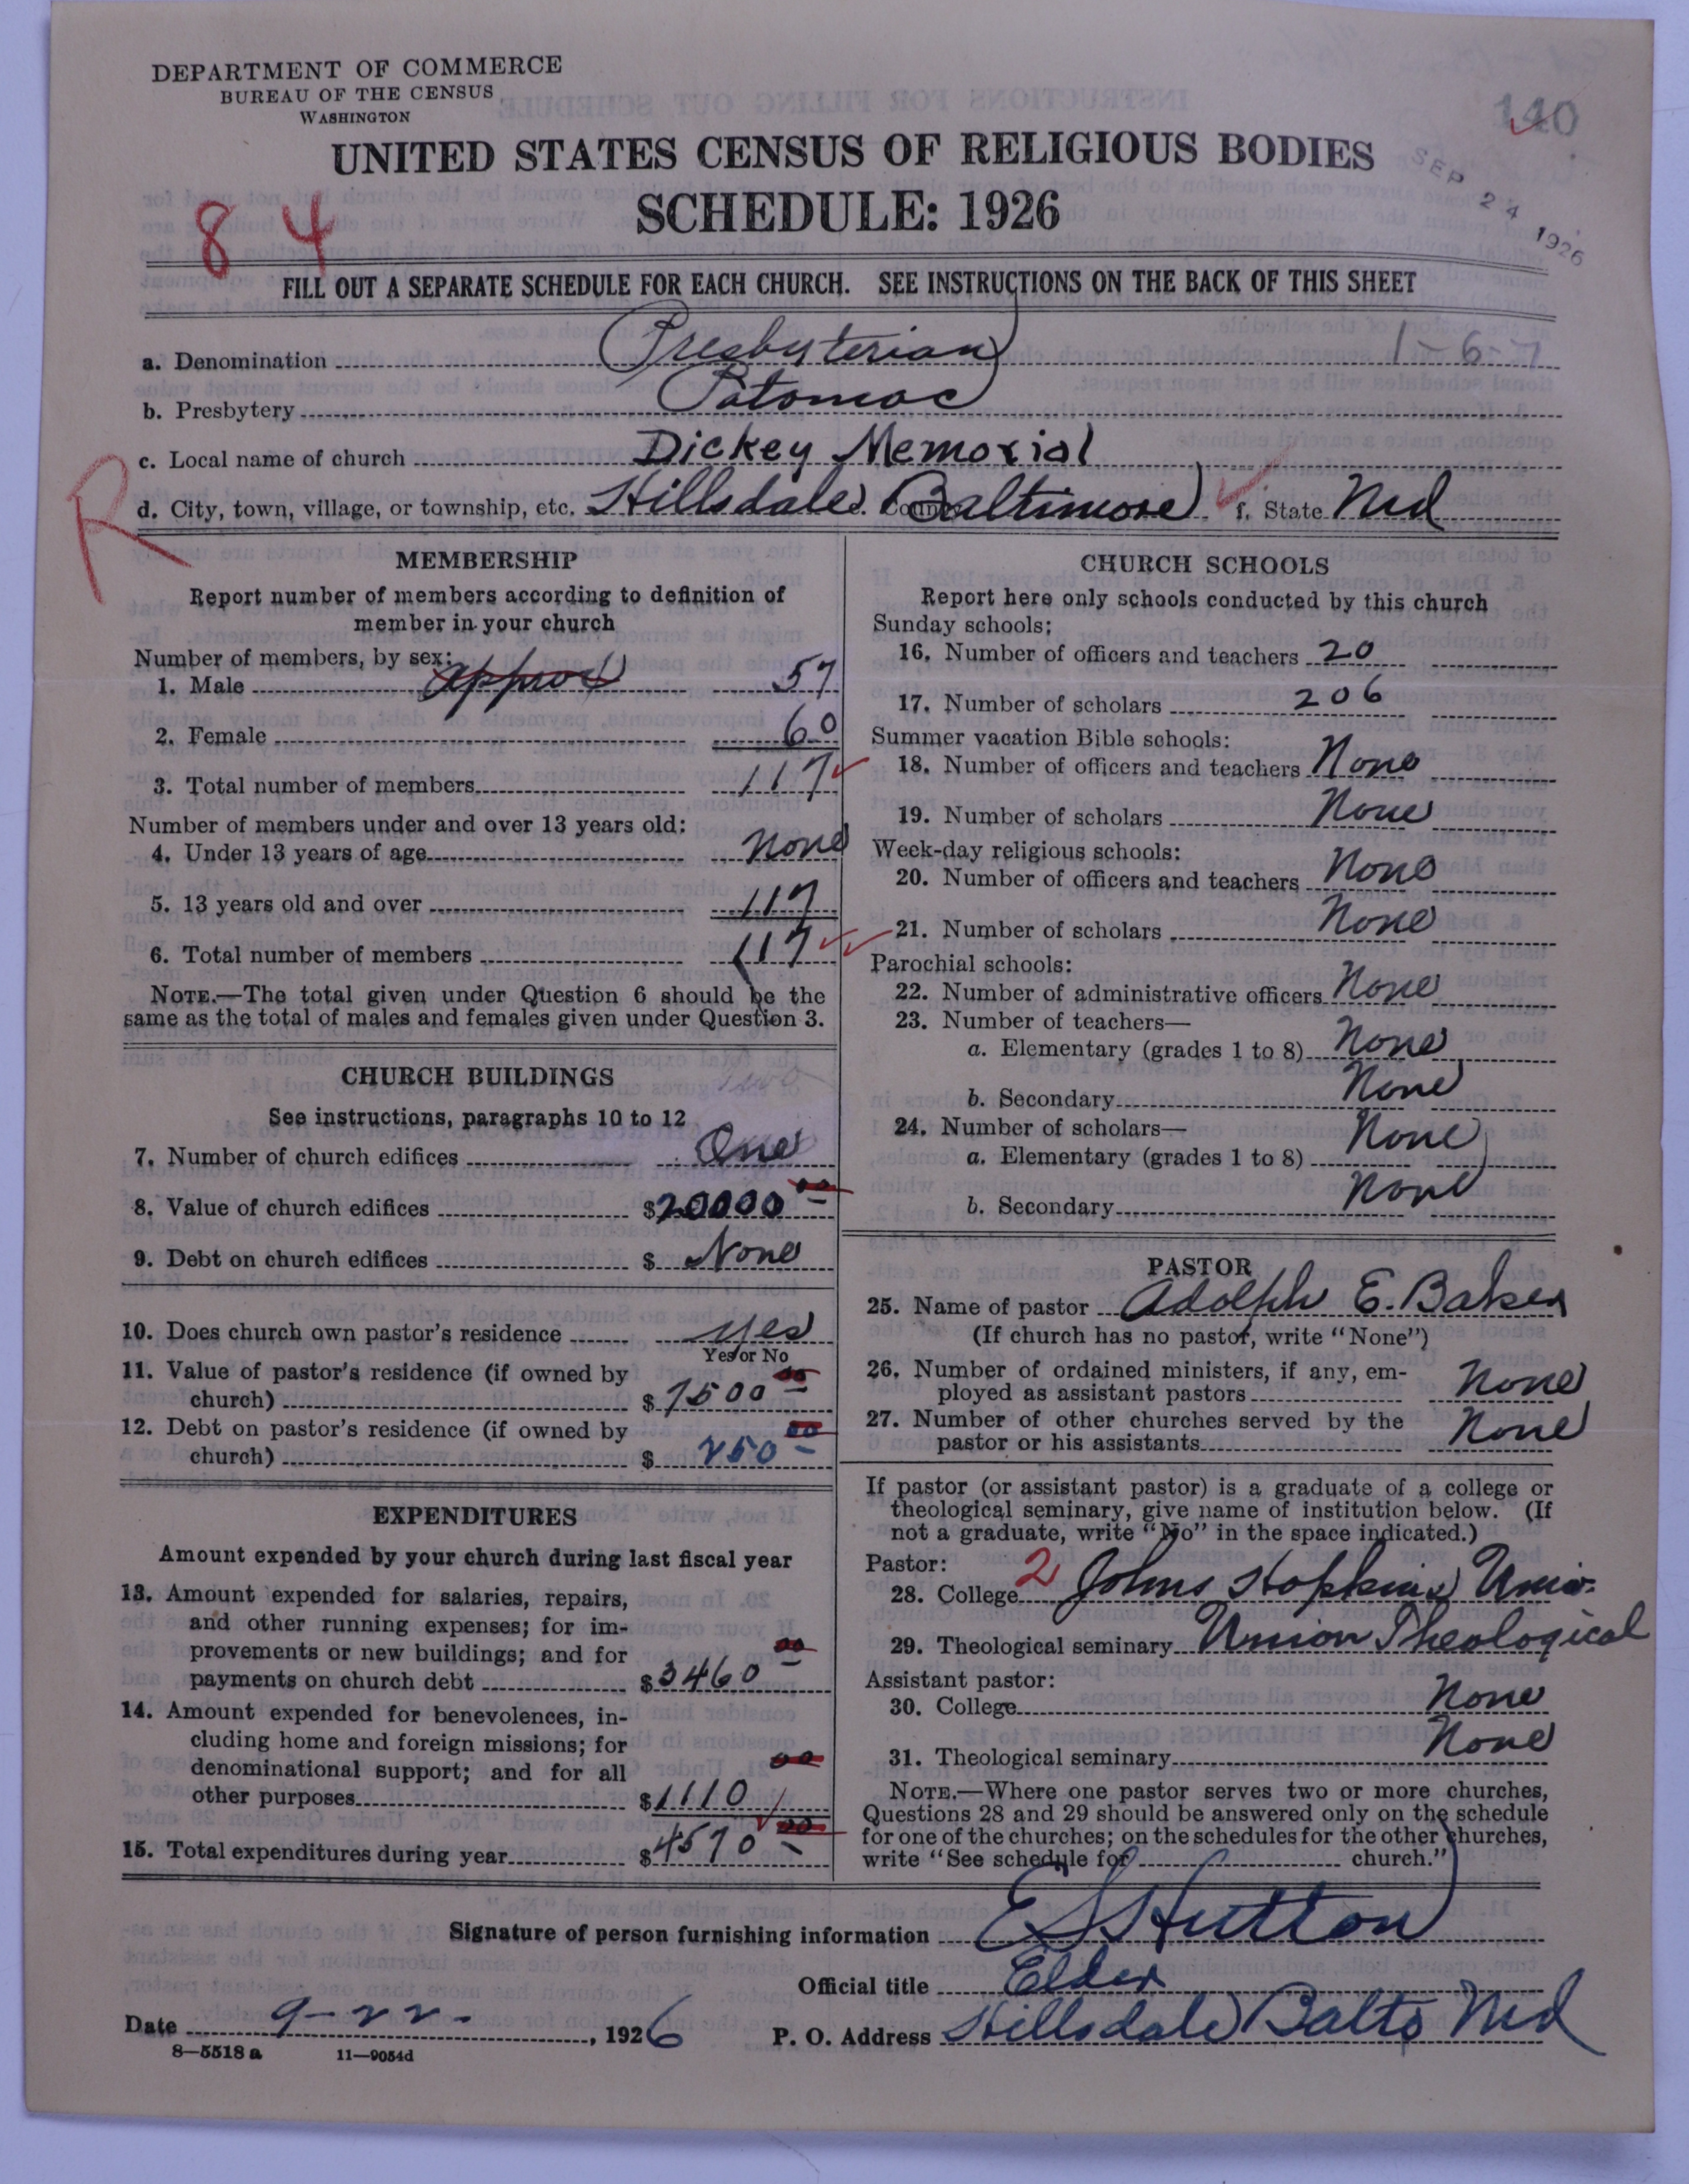 DEPARTMENT OF COMMERCE
BUREAU OF THE CENSUS
WASHINGTON
140
UNITED STATES CENSUS OF RELIGIOUS BODIES
SCHEDULE: 1926
SEP 24 1926
84
FILL OUT A SEPARATE SCHEDULE FOR EACH CHURCH. SEE INSTRUCTIONS ON THE BACK OF THIS SHEET
a. Denomination Presbyterian 1-6-7
b. Presbytery Potomac
c. Local name of church Dickey Memorial
R
d. City, town, village, or township, etc. Hillsdale e. County Baltimore f. State Md
MEMBERSHIP
Report number of members according to definition of
member in your church
Number of members, by sex:
1. Male approx 57
2. Female 60
3. Total number of members 117
Number of members under and over 13 years old:
4. Under 13 years of age None
5. 13 years old and over 117
6. Total number of members 117
NOTE.—The total given under Question 6 should be the
same as the total of males and females given under Question 3.
CHURCH BUILDINGS
See instructions, paragraphs 10 to 12
7. Number of church edifices One
8. Value of church edifices $20000 00
9. Debt on church edifices $ None
10. Does church own pastor's residence yes
Yes or No
11. Value of pastor's residence (if owned by
church) $7500 00
12. Debt on pastor's residence (if owned by
church) $ 250 00
EXPENDITURES
Amount expended by your church during last fiscal year
13. Amount expended for salaries, repairs,
and other running expenses; for im-
provements or new buildings; and for
payments on church debt $3460 00
14. Amount expended for benevolences, in-
cluding home and foreign missions; for
denominational support; and for all
other purposes $1110 00
15. Total expenditures during year $4570 00
CHURCH SCHOOLS
Report here only schools conducted by this church
Sunday schools:
16. Number of officers and teachers 20
17. Number of scholars 206
Summer vacation Bible schools:
18. Number of officers and teachers None
19. Number of scholars None
Week-day religious schools:
20. Number of officers and teachers None
21. Number of scholars None
Parochial schools:
22. Number of administrative officers None
23. Number of teachers—
a. Elementary (grades 1 to 8) None
b. Secondary None
24. Number of scholars—
a. Elementary (grades 1 to 8) None
b. Secondary None
PASTOR
25. Name of pastor Adolph E. Baker
(If church has no pastor, write "None")
26. Number of ordained ministers, if any, em-
ployed as assistant pastors None
27. Number of other churches served by the
pastor or his assistants None
If pastor (or assistant pastor) is a graduate of a college or
theological seminary, give name of institution below. (If
not a graduate, write "No" in the space indicated.)
Pastor:
28. College 2 Johns Hopkins Univ.
29. Theological seminary Union Theological
Assistant pastor:
30. College None
31. Theological seminary None
NOTE.—Where one pastor serves two or more churches,
Questions 28 and 29 should be answered only on the schedule
for one of the churches; on the schedules for the other churches,
write "See schedule for church."
Signature of person furnishing information E S Hutton
Official title Elder
Date 9-22-, 1926 P. O. Address Hillsdale Balto Md
8—5518 a 11—9054d